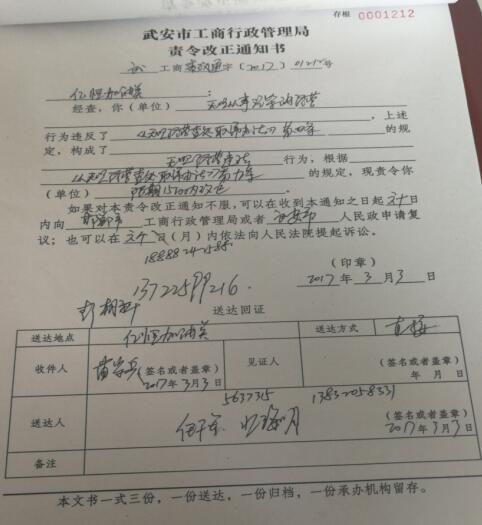 存根 0001212
武安市工商行政管理局
责令改正通知书
武 工商责改通字〔2017〕01212号
亿恒加油站 :
经查,你(单位) 无照从事经营
,上述
行为违反了 《无照经营查处取缔办法》第四条 的规
定,构成了
无照经营违法 行为,根据
《无照经营查处取缔办法》第九条 的规定,现责令你
(单位) 限期15日内改正 。
如果对本责令改正通知不服,可以在收到本通知之日起六十日
内向 邯郸市 工商行政管理局或者 武安市 人民政府申请复
议;也可以在 六个 日(月)内依法向人民法院提起诉讼。
(印章)
13722599216
2017年3月3日
送达回证
送达地点 亿恒加油站 送达方式 直接
收件人 (签名或者盖章) 2017年3月3日 见证人 (签名或者盖章) 年 月 日
5637315 13832058331
送达人 (签名或者盖章) 2017年3月3日
备注
本文书一式三份,一份送达,一份归档,一份承办机构留存。